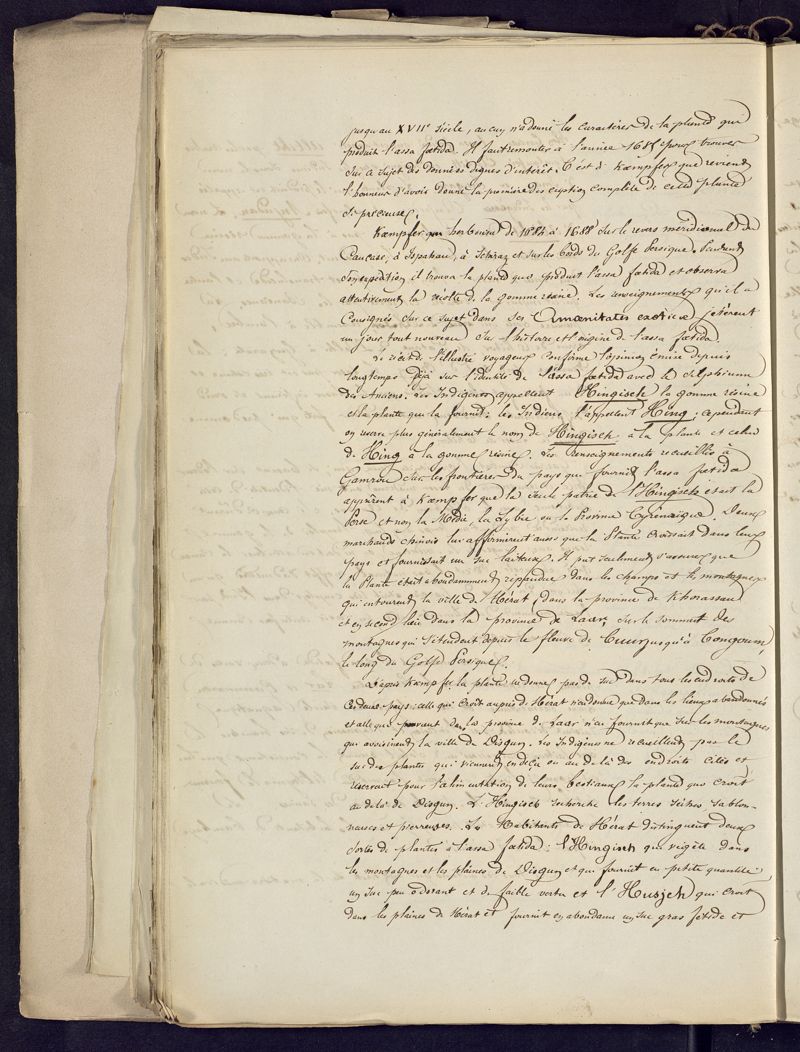 jusqu'au XVIIe siècle, aucun n'a donné les caractères de la plante qui
produit l'assa fœtida. Il faut remonter à l'année pour trouver
sur ce sujet des données dignes d'intérêt. C'est à Kæmpfer que revient
l'honneur d'avoir donné la première description complète de cette plante
si précieuse.
Kæmpfer herborisant de 1684 à 1688 sur le revers méridional du
Caucase, à Ispahan, à Schiraz et sur les bords du Golfe Persique. Pendant
son expédition il trouva la plante que produit l'assa fœtida et observa
attentivement la récolte de la gomme résine. Les renseignements qu'il a
consignés sur ce sujet dans ses Amœnitates exoticæ jetèrent
un jour tout nouveau sur l'histoire et l'origine de l'assa fœtida.
Le récit de l'illustre voyageur confirme l'opinion émise depuis
longtemps déjà sur l'identité de l'assa fœtida avec le Sylphium
des Anciens. Les Indigènes appellent Hingisch la gomme résine
et la plante que la fournit; les Indiens l'appellent Hing; cependant
on réserve plus généralement le nom de Hingisch à la plante et celui
de Hing à la gomme résine. Les renseignements recueillis à
Gamron sur les frontières du pays que fournit l'assa fœtida
apprirent à Kæmpfer que la seule patrie de l'Hingisch était la
Perse et non la Médie, la Lybie ou la Province Cyrénaïque. Deux
marchands chinois lui affirmèrent aussi que la Plante croissait dans leur
pays et fournissait un suc laiteux. Il put seulement s'assurer que
la Plante était abondamment répandue dans les champs et les montagnes
qui entourent la ville de Hérat, dans la province de Khorassan
et en second lieu dans la province de Laar, sur le sommet des
montagnes qui s'étendent depuis le fleuve de Cuur jusqu'à Congoum,
le long du Golfe Persique.
Depuis Kæmpfer la plante ne donne pas de suc dans tous les endroits de
ces deux pays: celle qui croît auprès de Hérat n'en donne que dans les lieux abandonnés
et celle que dans la province de Laar n'en fournit que sur les montagnes
qui avoisinent la ville de Disgun. Les Indigènes ne recueillent pas le
suc des plantes qui viennent en deçà ou au delà des endroits cités et
réservent pour l'alimentation de leurs bestiaux la plante que croît
au delà de Disgun. L'Hingisch recherche les terres sèches sablon-
neuses et pierreuses. Les Habitants de Hérat distinguent deux
sortes de plantes à l'assa fœtida: l'Hingisch qui végète dans
les montagnes et les plaines de Disgun et qui fournit en petite quantité
un suc peu odorant et de faible vertu et l'Husjeh qui croît
dans les plaines de Hérat et fournit en abondance un suc gras fétide et